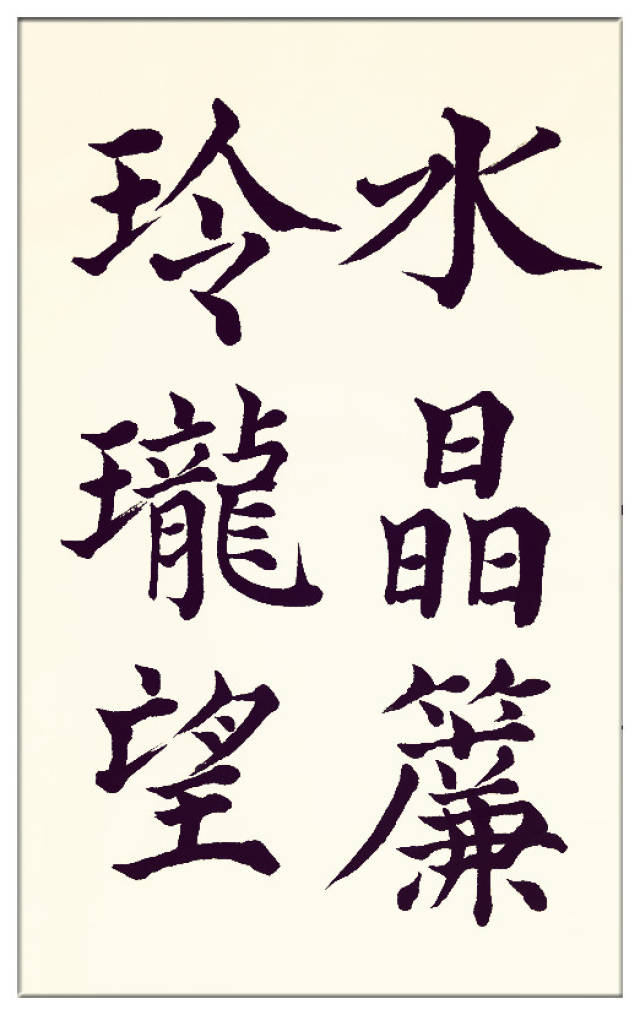 水晶簾
玲瓏望